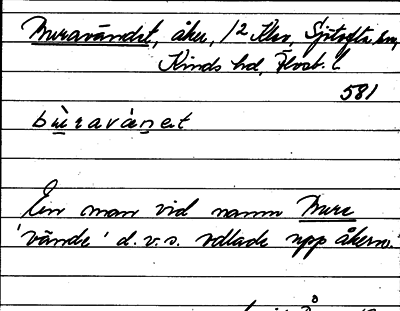 Buravändet, åker, 1/2 Klev, Sjötofta sn,
Kinds hd, Älvsb. l.
581
bùravànet
En man vid namn Bure
'vände' d.v.s. odlade upp åkern.